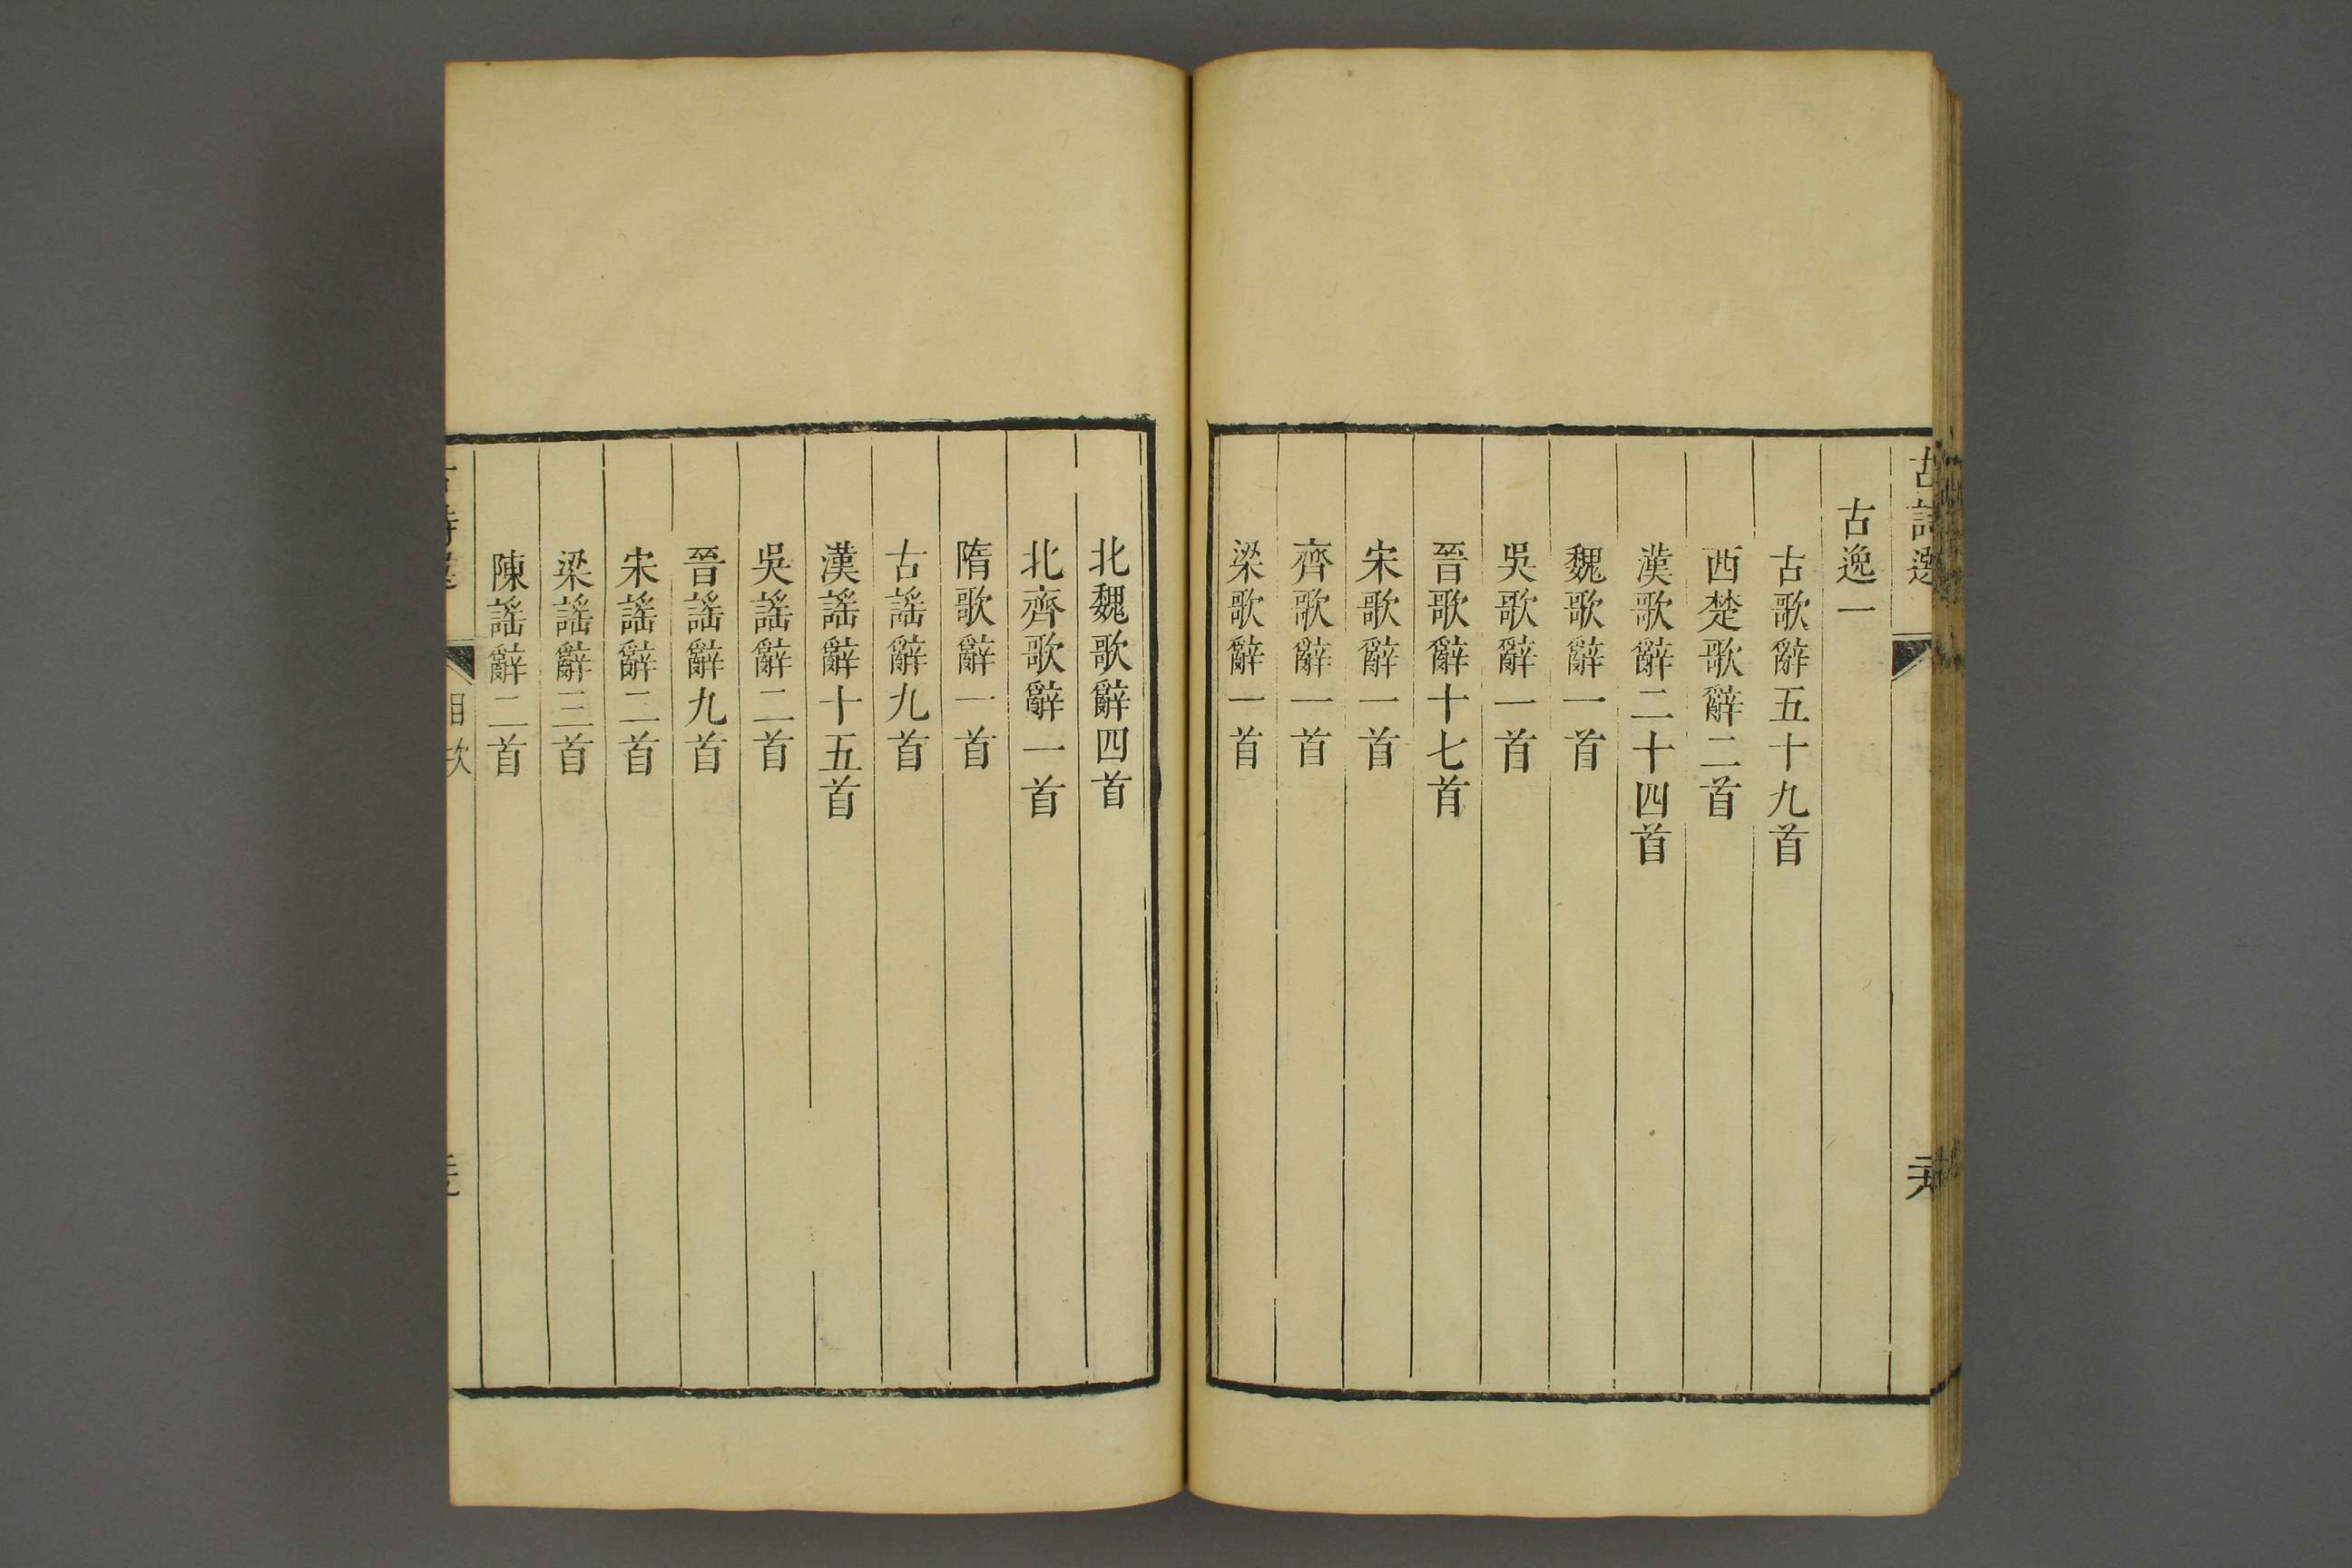 古詩選
古逸一
古歌辭五十九首
西楚歌辭二首
漢歌辭二十四首
魏歌辭一首
吳歌辭一首
晉歌辭十七首
宋歌辭一首
齊歌辭一首
梁歌辭一首
北魏歌辭四首
北齊歌辭一首
隋歌辭一首
古謡辭九首
漢謡辭十五首
吳謡辭二首
晉謡辭九首
宋謡辭二首
梁謡辭三首
陳謡辭二首
古詩選
目次